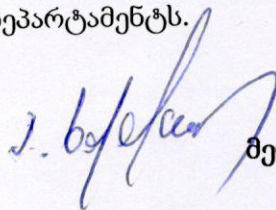 ეპარტამენტს.
მე